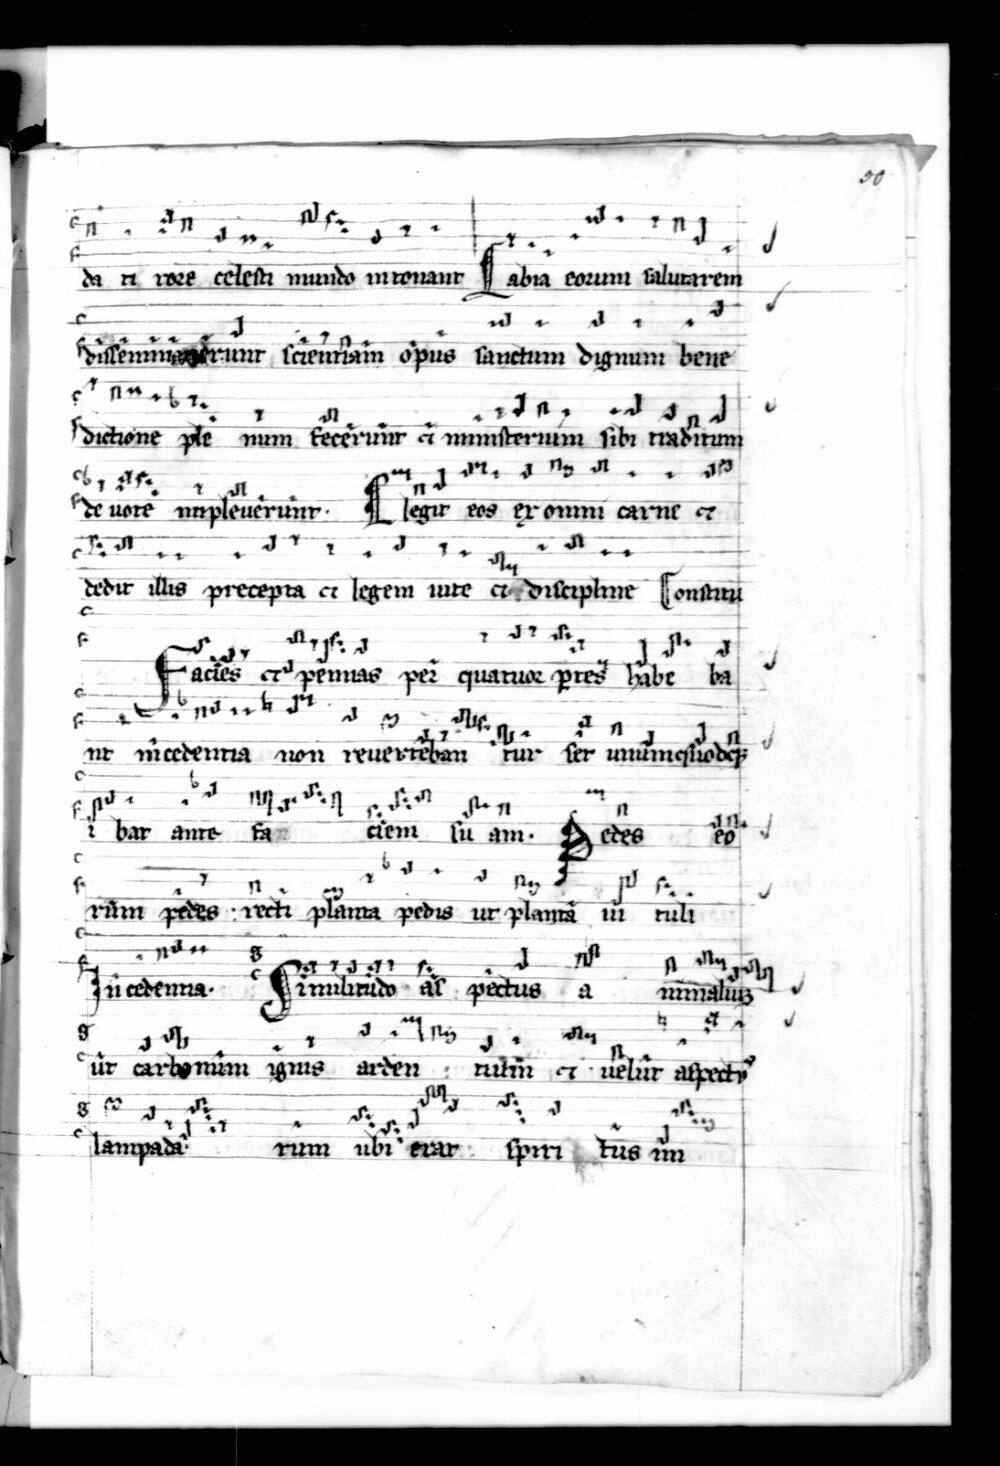 50
da ti rore celesti mundo intonant Labia eorum salutarem
disseminaverunt scientiam opus sanctum dignum bene
dictione ple num fecerunt et ministerium sibi traditum
de vote impleverunt. Elegit eos ex omni carne et
dedit illis precepta et legem vite et discipline Constitu
Facies et pennas per quatuor ptes habe ba
nt incedentia non reverteban tur set unumquodque
i bat ante fa ciem su am. Pedes eo
rum pedes recti planta pedis ut planta vi tuli
In cedentia. Similitudo as pectus a nimalium
ut carbonum ignis arden tium et velut aspectus
lampada rum ubi erat spiri tus im